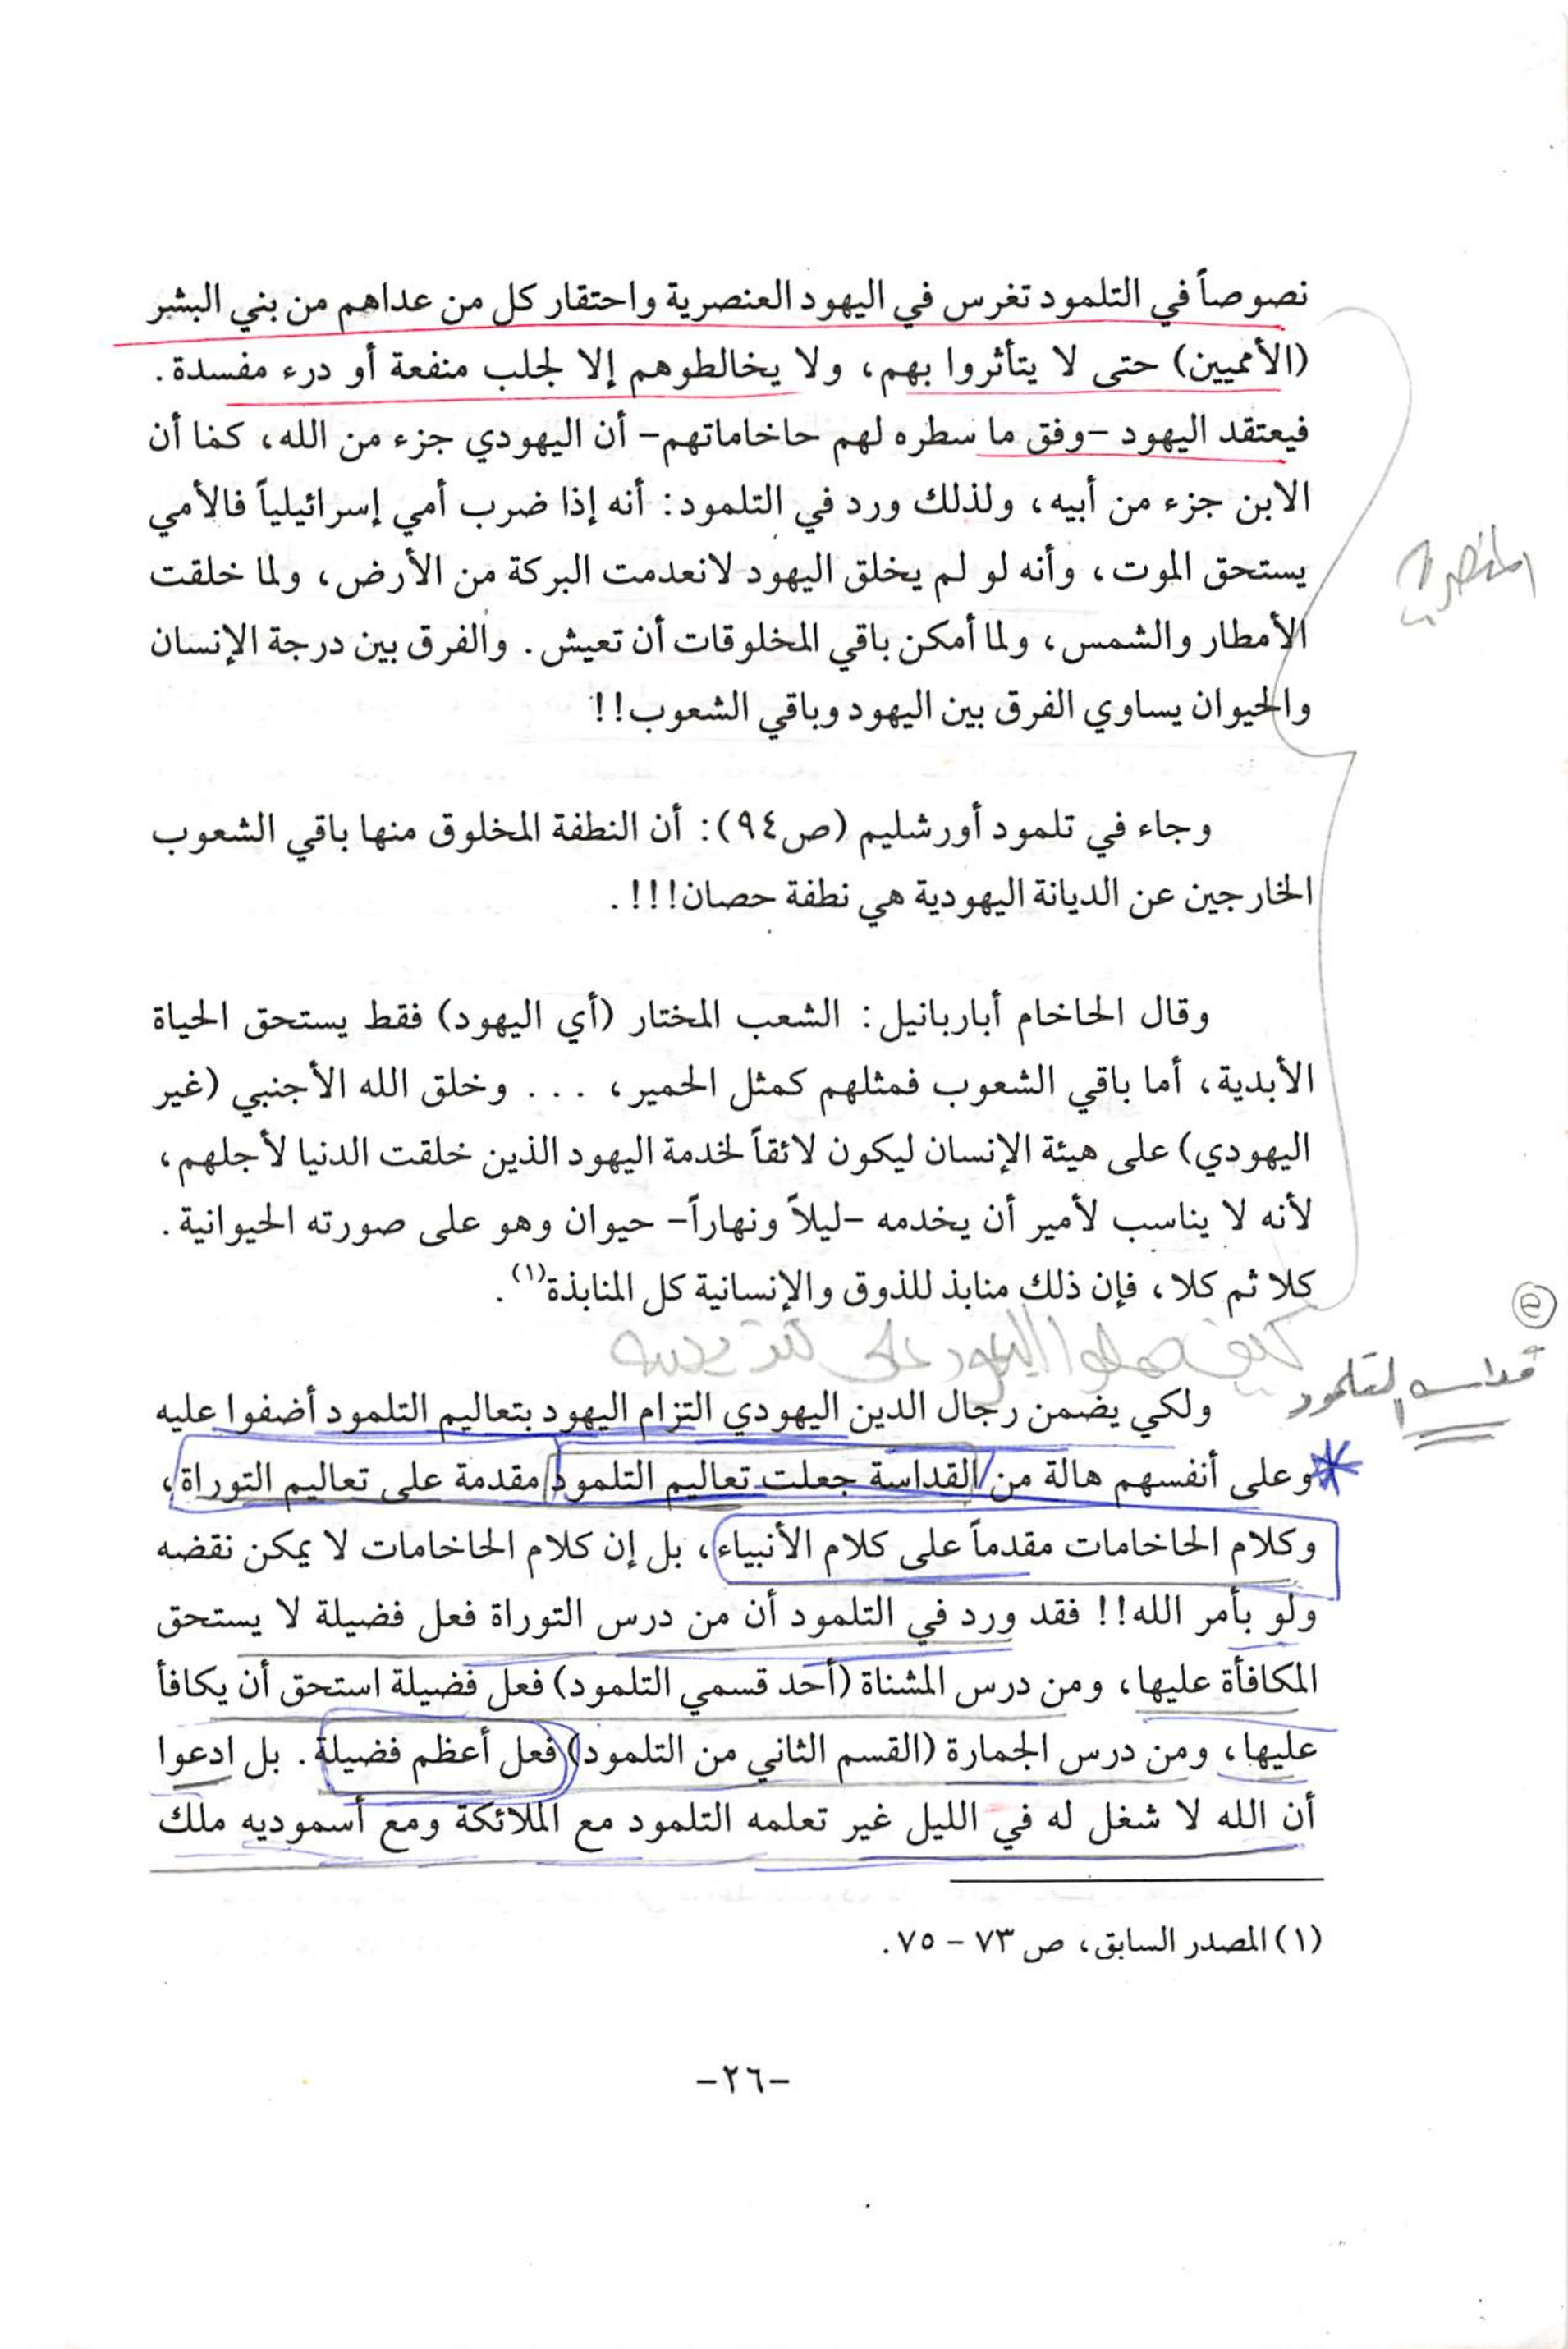 نصوصاً في التلمود تغرس في اليهود العنصرية واحتقار كل من عداهم من بني البشر
(الأمميين) حتى لا يتأثروا بهم، ولا يخالطوهم إلا لجلب منفعة أو درء مفسدة.
فيعتقد اليهود -وفق ما سطره لهم حاخاماتهم- أن اليهودي جزء من الله، كما أن
الابن جزء من أبيه، ولذلك ورد في التلمود: أنه إذا ضرب أمي إسرائيلياً فالأمي
يستحق الموت، وأنه لو لم يخلق اليهود لانعدمت البركة من الأرض، ولما خلقت
العنصرية
الأمطار والشمس، ولما أمكن باقي المخلوقات أن تعيش. والفرق بين درجة الإنسان
والحيوان يساوي الفرق بين اليهود وباقي الشعوب!!
وجاء في تلمود أورشليم (ص٩٤): أن النطفة المخلوق منها باقي الشعوب
الخارجين عن الديانة اليهودية هي نطفة حصان!!!.
وقال الحاخام أباربانيل: الشعب المختار (أي اليهود) فقط يستحق الحياة
الأبدية، أما باقي الشعوب فمثلهم كمثل الحمير، ... وخلق الله الأجنبي (غير
اليهودي) على هيئة الإنسان ليكون لائقاً لخدمة اليهود الذين خلقت الدنيا لأجلهم،
لأنه لا يناسب لأمير أن يخدمه -ليلاً ونهاراً- حيوان وهو على صورته الحيوانية.
كلا ثم كلا، فإن ذلك منابذ للذوق والإنسانية كل المنابذة(١).
كيف حملوا اليهود على تقديسه
قداسة التلمود
ولكي يضمن رجال الدين اليهودي التزام اليهود بتعاليم التلمود أضفوا عليه
وعلى أنفسهم هالة من القداسة جعلت تعاليم التلمود مقدمة على تعاليم التوراة،
وكلام الحاخامات مقدماً على كلام الأنبياء، بل إن كلام الحاخامات لا يمكن نقضه
ولو بأمر الله!! فقد ورد في التلمود أن من درس التوراة فعل فضيلة لا يستحق
المكافأة عليها، ومن درس المشناة (أحد قسمي التلمود) فعل فضيلة استحق أن يكافأ
عليها، ومن درس الجمارة (القسم الثاني من التلمود) فعل أعظم فضيلة. بل ادعوا
أن الله لا شغل له في الليل غير تعلمه التلمود مع الملائكة ومع أسموديه ملك
(١) المصدر السابق، ص ٧٣ - ٧٥.
-٢٦-